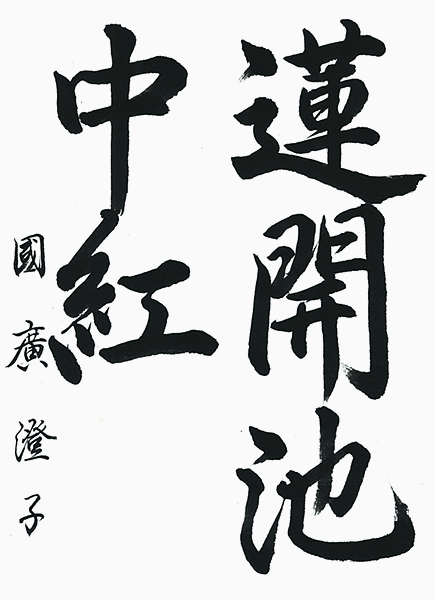 蓮開池
中紅
國廣澄子